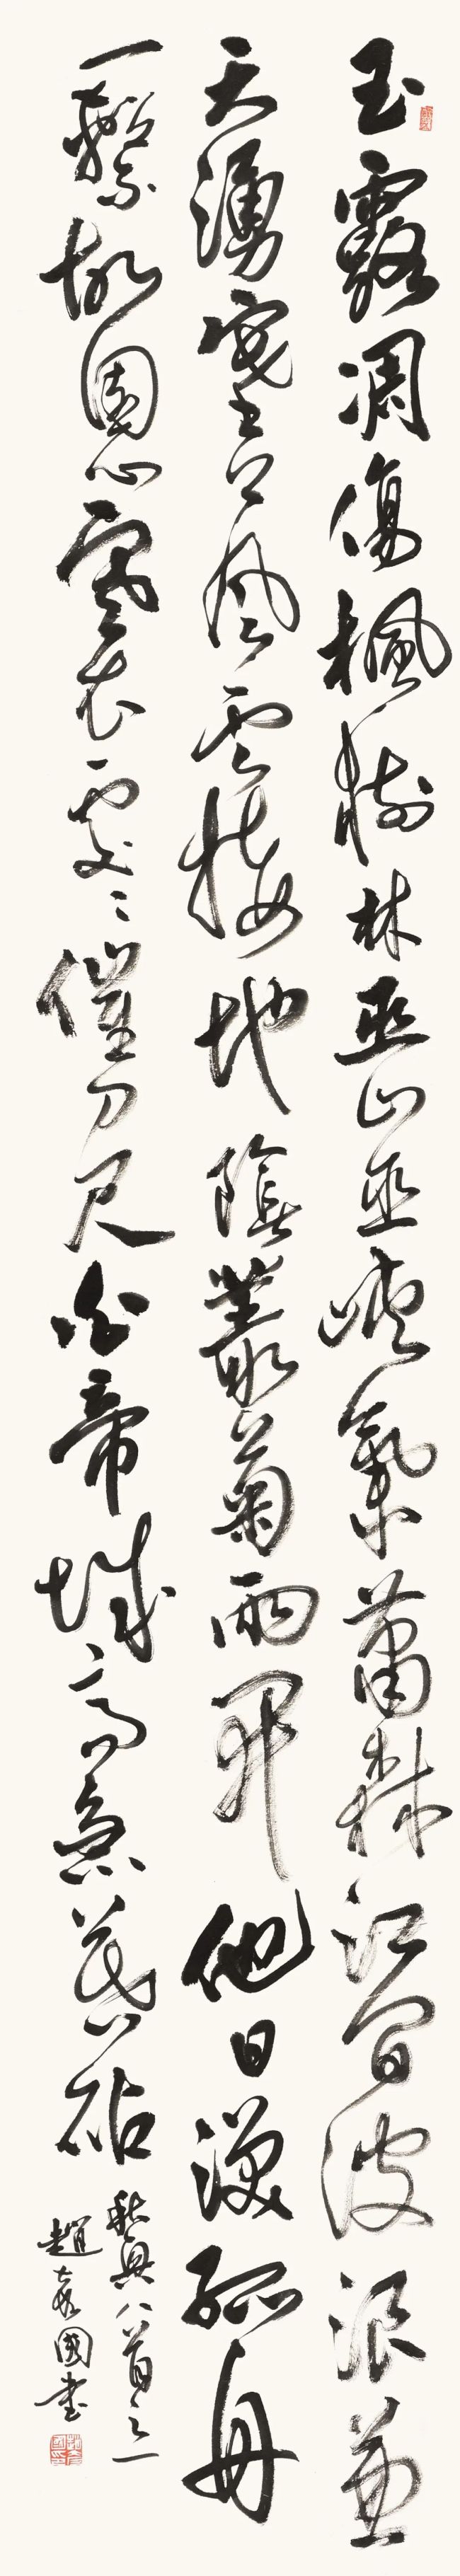 玉露凋傷楓樹林巫山巫峽氣蕭森江間波浪兼
天湧塞上風雲接地陰叢菊兩開他日淚孤舟
一繫故園心寒衣處〻催刀尺白帝城高急暮砧
秋興八首之一
趙國書